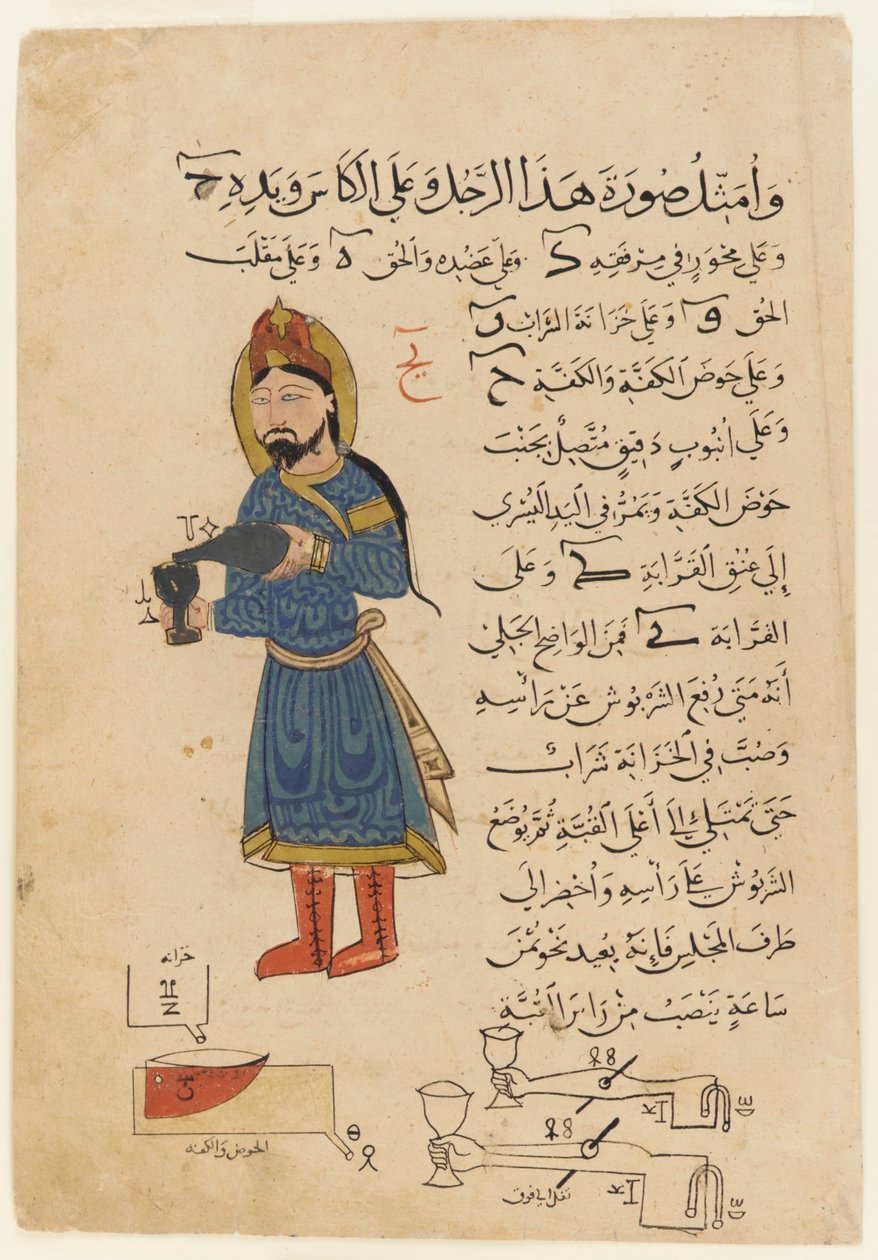 وَأُمَثِّلُ صُورَةَ هَذَا الرَّجُل وَعَلَى الكَاسَ وَيَدِهِ ح
وَعَلَى مِحْوَرٍ فِي مِرْفَقِهِ د وَعَلَى عَضُدِه وَالحُق ه وَعَلَى مَقْلَبَ
الحُق و وَعَلَى خَزَانَةَ الشَرَاب ز
وَعَلَى حَوضَ الكَفَّة وَالكَفَّة ح
وَعَلَى انْبُوبٍ دَقِيقٍ مُتَّصِلٌ بِجَنْبَ
حَوْضَ الكَفَّةِ وَيَمُرُّ فِي اليَدِ اليُسْرَي
إِلَى عُنُقِ القَرَّابَةِ وَعَلَى
القَرَّابَة فَمِنَ الوَاضِحِ الجَلِي
أَنَّهُ مَتَى رُفِعَ الشَرْبُوش عَنْ رَأسِهِ
وَصُبَّ فِي الخَزَانَةِ شَرَابٌ
حَتَى تَمْتَلِي إِلَى أَعْلَى القُبَّةِ ثُمَّ يُوضَعُ
الشَرْبُوش عَلَى رَأسِهِ وَأُحْضِرَ الى
طَرَفَ المَجْلِسِ فَإِنَّهُ بعِيد نَحْو ثُمْنَ
سَاعَةٍ يَنْصَبُ مِنْ القُبَّة
خزانه
الحوض والكفه
ثقل الى فوق